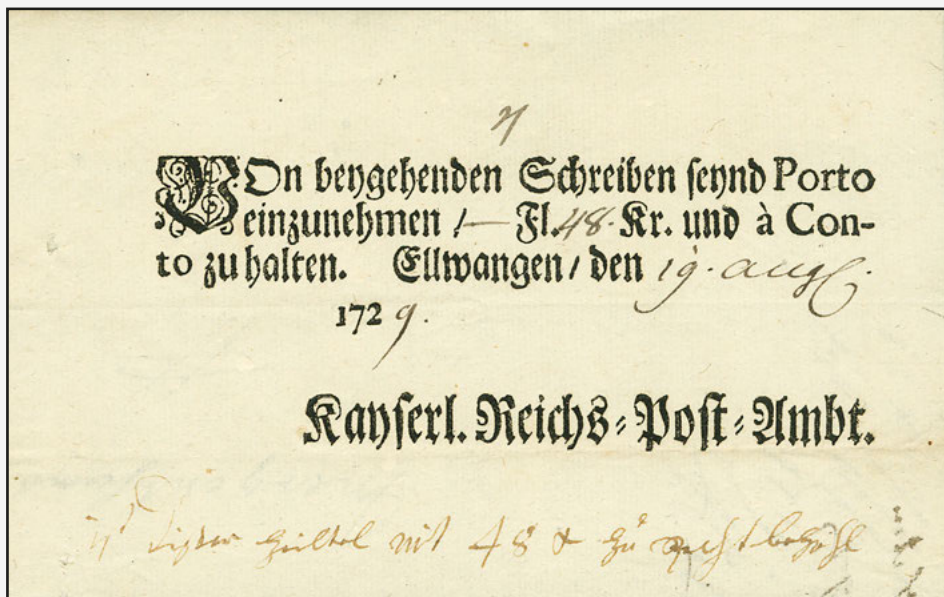 VOn beygehenden Schreiben seynd Porto
einzunehmen / — Fl. 48. Kr. und à Con-
to zu halten. Ellwangen / den 19. aug.
1729.
Kayserl. Reichs-Post-Ambt.
mit 48 x